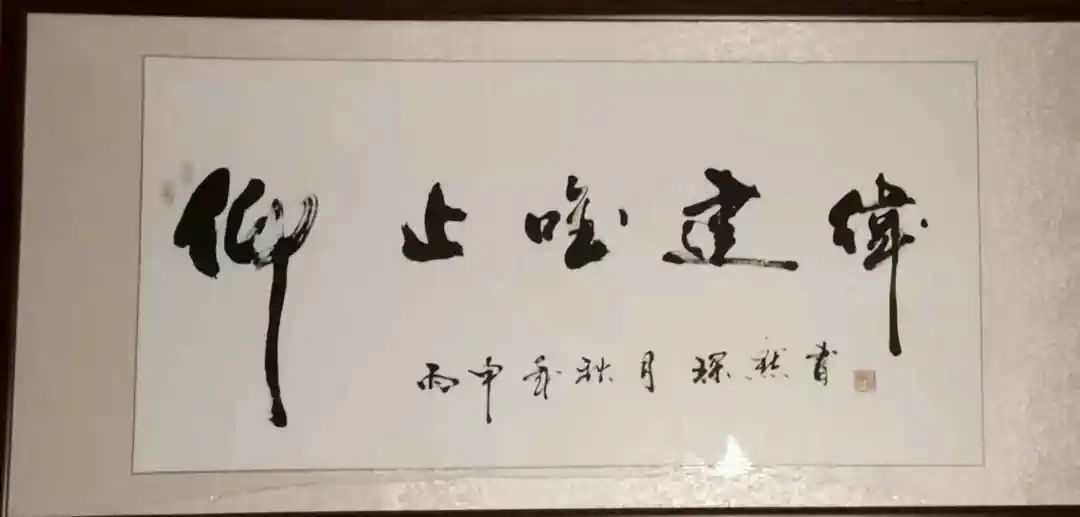 仰止唯建伟
丙申年秋月 琛然书